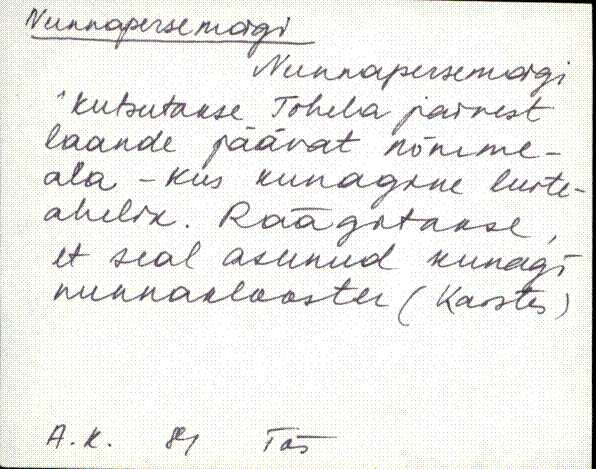 Nunnapersemägi
Nunnapersemägi
kutsutakse Tohela järvest
laande jäävat nõmme-
ala - kus kunagine luite-
ahelik. Räägitakse,
et seal asunud kunagi
nunnaklooster (Karste)
A.K. 81 Tõs